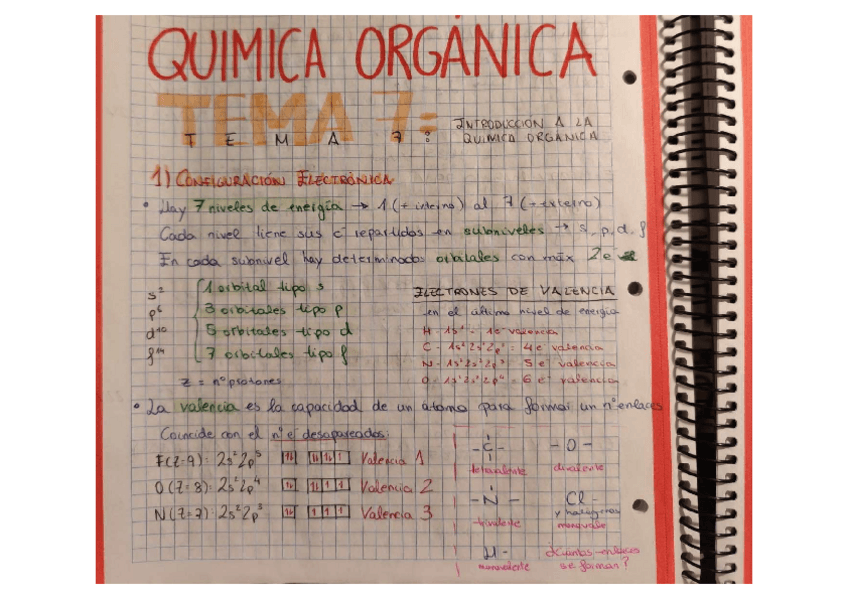 QUIMICA ORGÁNICA
TEMA 7:
T E M A 7 :
INTRODUCCIÓN A LA
QUIMICA ORGÁNICA
1) CONFIGURACIÓN ELECTRÓNICA
• Hay 7 niveles de energía → 1 (+ interno) al 7 (+ externo)
Cada nivel tiene sus e⁻ repartidos en subniveles → s, p, d, f
En cada subnivel hay determinados orbitales con máx 2e⁻
s² 1 orbital tipo s
p⁶ 3 orbitales tipo p
d¹⁰ 5 orbitales tipo d
f¹⁴ 7 orbitales tipo f
z = nº protones
ELECTRONES DE VALENCIA
en el último nivel de energía
H - 1s¹ = 1e⁻ valencia
C - 1s²2s²2p² = 4e⁻ valencia
N - 1s²2s²2p³ = 5e⁻ valencia
O - 1s²2s²2p⁴ = 6e⁻ valencia
• La valencia es la capacidad de un átomo para formar un nº enlaces
Coincide con el nº e⁻ desapareados:
F (Z=9): 2s²2p⁵ Valencia 1
O (Z=8): 2s²2p⁴ Valencia 2
N (Z=7): 2s²2p³ Valencia 3
- C - - O -
tetravalente divalente
- N - Cl -
trivalente y halógenos
monovale
H -
monovalente
¿Cuántos enlaces
se forman?